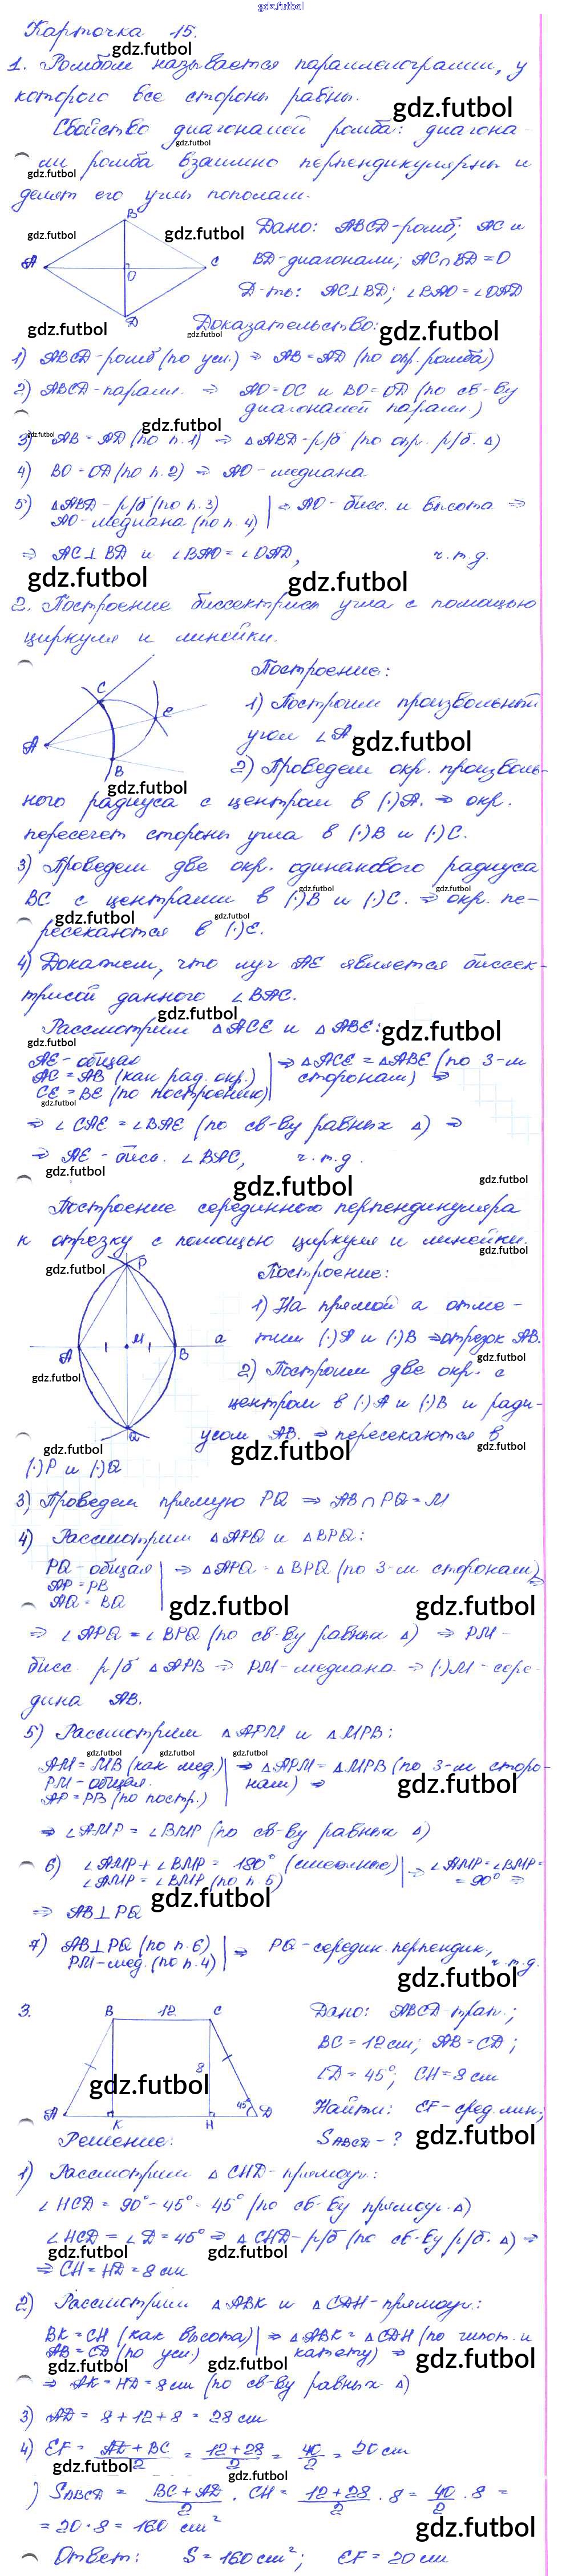 gdz.futbol
Карточка 15.
gdz.futbol
1. Ромбом называется параллелограмм, у
которого все стороны равны.
gdz.futbol
Свойство диагоналей ромба: диагона-
gdz.futbol
ли ромба взаимно перпендикулярны и
gdz.futbol
делят его углы пополам.
B
A O C
D
gdz.futbol gdz.futbol
Дано: ABCD-ромб; AC и
BD-диагонали; AC∩BD=O
Д-ть: AC⊥BD; ∠BAO=∠OAD
gdz.futbol gdz.futbol gdz.futbol
Доказательство:
1) ABCD-ромб (по усл.) ⇒ AB=AD (по опр. ромба)
2) ABCD-паралл. ⇒ AO=OC и BO=OD (по св-ву
диагоналей паралл.)
gdz.futbol gdz.futbol
3) AB=AD (по п.1) ⇒ △ABD-р/б (по опр. р/б. △)
4) BO=OD (по п.2) ⇒ AO-медиана
5) △ABD-р/б (по п.3) ⇒ AO-бисс. и высота ⇒
AO-медиана (по п.4)
⇒ AC⊥BD и ∠BAO=∠OAD, ч.т.д.
gdz.futbol gdz.futbol
2. Построение биссектрисы угла с помощью
циркуля и линейки.
C
E
A
B
Построение:
1) Построим произвольный
угол ∠A
gdz.futbol
2) Проведем окр. произволь-
gdz.futbol
ного радиуса с центром в (·)A. ⇒ окр.
пересечет стороны угла в (·)B и (·)C.
3) Проведем две окр. одинакового радиуса
gdz.futbol gdz.futbol
BC с центрами в (·)B и (·)C. ⇒ окр. пе-
gdz.futbol gdz.futbol
ресекаются в (·)E.
4) Докажем, что луч AE является биссек-
трисой данного ∠BAC.
gdz.futbol
Рассмотрим △ACE и △ABE:
gdz.futbol gdz.futbol
AE-общая ⇒ △ACE=△ABE (по 3-м
AC=AB (как рад. окр.) сторонам) ⇒
CE=BE (по построению)
gdz.futbol
⇒ ∠CAE=∠BAE (по св-ву равных △) ⇒
⇒ AE-бисс. ∠BAC, ч.т.д.
gdz.futbol gdz.futbol gdz.futbol
Построение серединного перпендикуляра
к отрезку с помощью циркуля и линейки.
gdz.futbol gdz.futbol
P
A M B a
Q
Построение:
1) На прямой a отме-
тим (·)A и (·)B ⇒ отрезок AB.
gdz.futbol gdz.futbol
2) Построим две окр. с
центром в (·)A и (·)B и ради-
усом AB. ⇒ пересекаются в
gdz.futbol gdz.futbol gdz.futbol
(·)P и (·)Q
3) Проведем прямую PQ ⇒ AB∩PQ=M
4) Рассмотрим △APQ и △BPQ:
PQ-общая ⇒ △APQ=△BPQ (по 3-м сторонам) ⇒
AP=PB
AQ=BQ
gdz.futbol gdz.futbol
⇒ ∠APQ=∠BPQ (по св-ву равных △) ⇒ PM-
бисс. р/б △APB ⇒ PM-медиана ⇒ (·)M-сере-
дина AB.
5) Рассмотрим △APM и △MPB:
gdz.futbol gdz.futbol gdz.futbol
AM=MB (как мед.) ⇒ △APM=△MPB (по 3-м сторо-
PM-общая. нам) ⇒
AP=PB (по постр.)
gdz.futbol
⇒ ∠AMP=∠BMP (по св-ву равных △)
6) ∠AMP+∠BMP=180° (смежные) ⇒ ∠AMP=∠BMP=
∠AMP=∠BMP (по п.5) =90° ⇒
gdz.futbol
⇒ AB⊥PQ
7) AB⊥PQ (по п.6) ⇒ PQ-середин. перпендик.,
PM-мед. (по п.4) ч.т.д.
gdz.futbol
3.
B 12 C
8
45°
A K H D
gdz.futbol
Дано: ABCD-трап.;
BC=12см; AB=CD;
∠D=45°; CH=8см
Найти: EF-сред. лин;
SABCD-?
gdz.futbol
Решение:
1) Рассмотрим △CHD-прямоуг.:
∠HCD=90°-45°=45° (по св-ву прямоуг. △)
∠HCD=∠D=45° ⇒ △CHD-р/б (по св-ву р/б. △) ⇒
gdz.futbol gdz.futbol
⇒ CH=HD=8см
2) Рассмотрим △ABK и △CDH-прямоуг.:
BK=CH (как высота) ⇒ △ABK=△CDH (по гипот. и
AB=CD (по усл.) катету) ⇒
gdz.futbol gdz.futbol gdz.futbol
⇒ AK=HD=8см (по св-ву равных △)
3) AD=8+12+8=28см
4) EF=AD+BC/2=12+28/2=40/2=20см
gdz.futbol gdz.futbol
) SABCD=BC+AD/2·CH=12+28/2·8=40/2·8=
=20·8=160 см²
gdz.futbol
Ответ: S=160см²; EF=20см